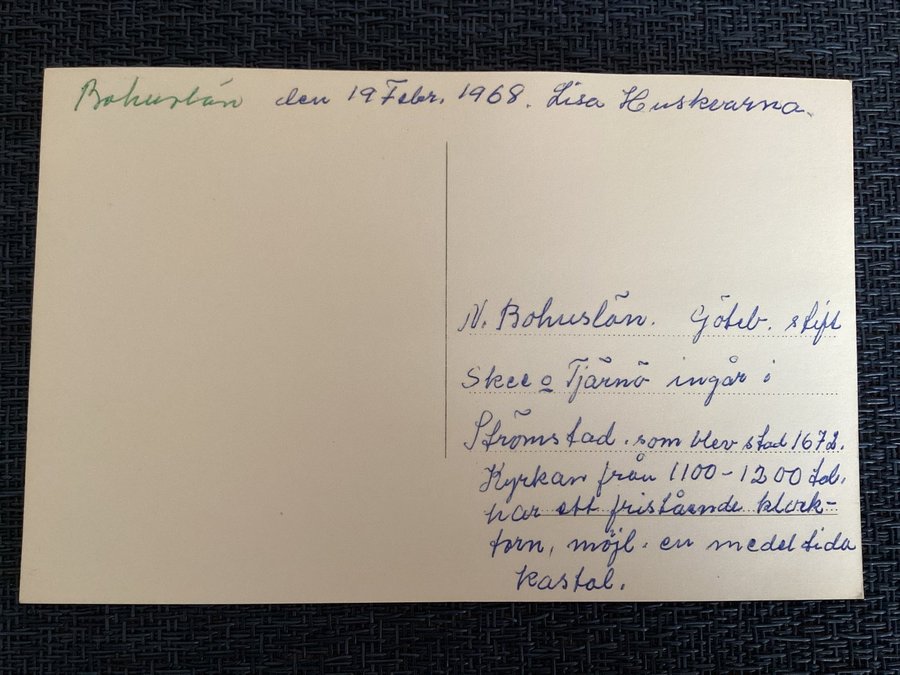 Bohuslän den 19 Febr. 1968. Lisa Huskvarna.
N. Bohuslän. Göteb. stift
Skee o Tjärnö ingår i
Strömstad. som blev stad 1672.
Kyrkan från 1100-1200 tal.
har ett fristående klock-
torn, möjl. en medeltida
kastal.